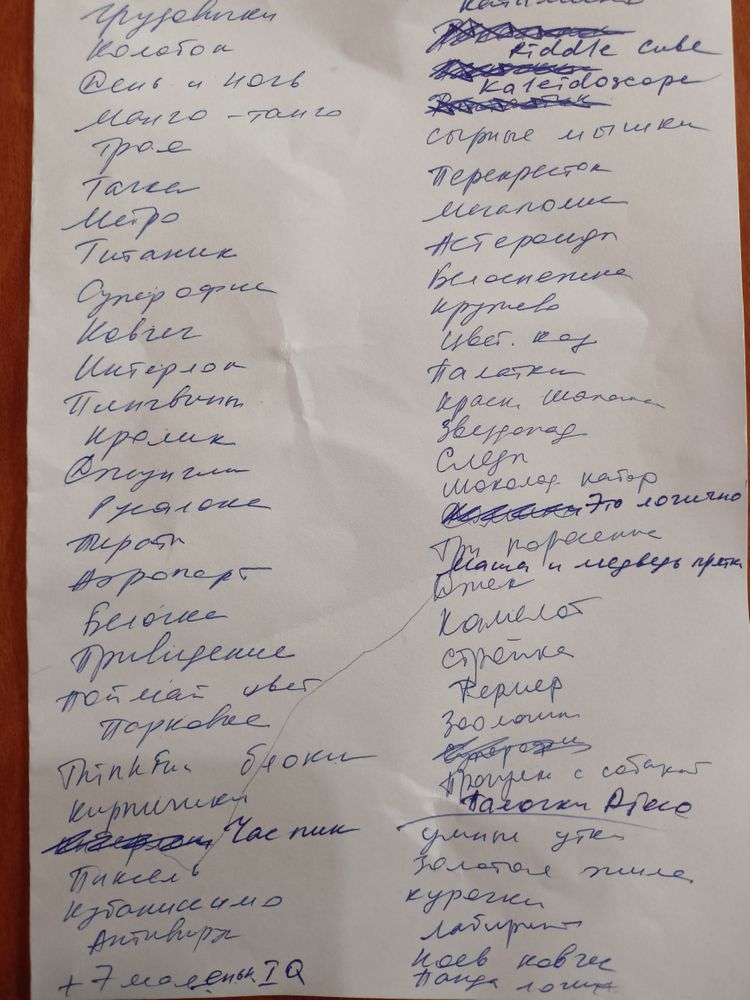 Грузовички
Колобок
День и ночь
Манго-танго
Троя
Тачки
Метро
Титаник
Суперофис
Ковчег
Интерлок
Пингвины
Кролик
Джунгли
Русалока
Пираты
Аэропорт
Белочка
Привидение
Поймай цвет
Парковка
Thinkfun блоки
Кирпичики
Час пик
Пиксель
Кубониссимо
Антивирус
+ 7 маленьк IQ
Riddle cube
Kaleidoscope
Сырные мышки
Перекресток
Мегаполис
Астероиды
Белоснежка
Кружево
Цвет. код
Палатки
Красн. Шапочка
Звездопад
Следы
Шоколад набор
Это логично
Три поросенка
Маша и медведь прятки
Джек
Камелот
Стройка
Фермер
Зоологик
Прогулки с собакой
Палочки
умные утки
Золотая жила
Курочки
Лабиринт
Ноев ковчег
Панда